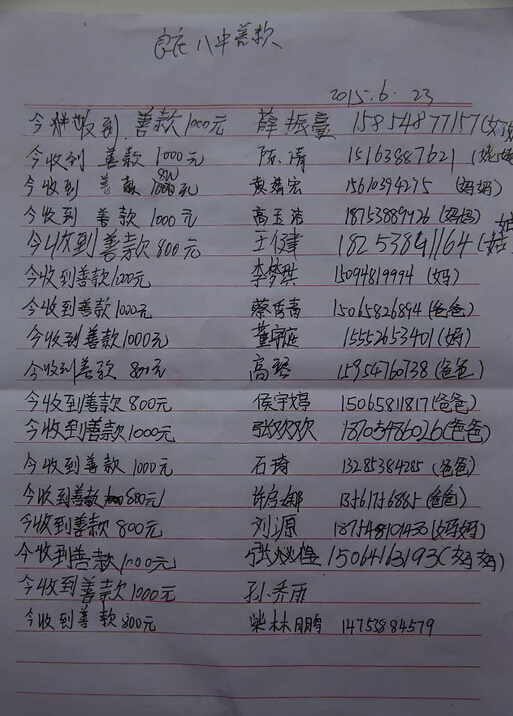 良庄八中善款
2015.6.23
今收到 善款1000元 薛振豪 15854877157(
今收到 善款 1000元 陈倩 15163887621
今收到 善款 元 宏 15610394275 (妈妈)
今收到 善款 1000元 高玉洁 18753889926 (妈妈)
今收到善款800元 王健 18253841164 (
今收到善款1000元 李梦琪 15094819994 (妈)
今收到善款1000元 蔡 15065826894(爸爸)
今收到善款1000元 董 15552653401(妈)
今收到善款 800元 高琴 15954760738(爸爸)
今收到善款800元 侯宇婷 15065811817(爸爸)
今收到善款1000元 张欢欢 (爸爸)
今收到善款1000元 石琦 13285384285 (爸爸)
今收到善款 800元 许 娜 13561756885(爸爸)
今收到善款800元 刘源 (妈妈)
今收到善款1000元 张 15064163193(妈妈)
今收到善款1000元 孙秀雨
今收到善款800元 柴林鹏 14753884579